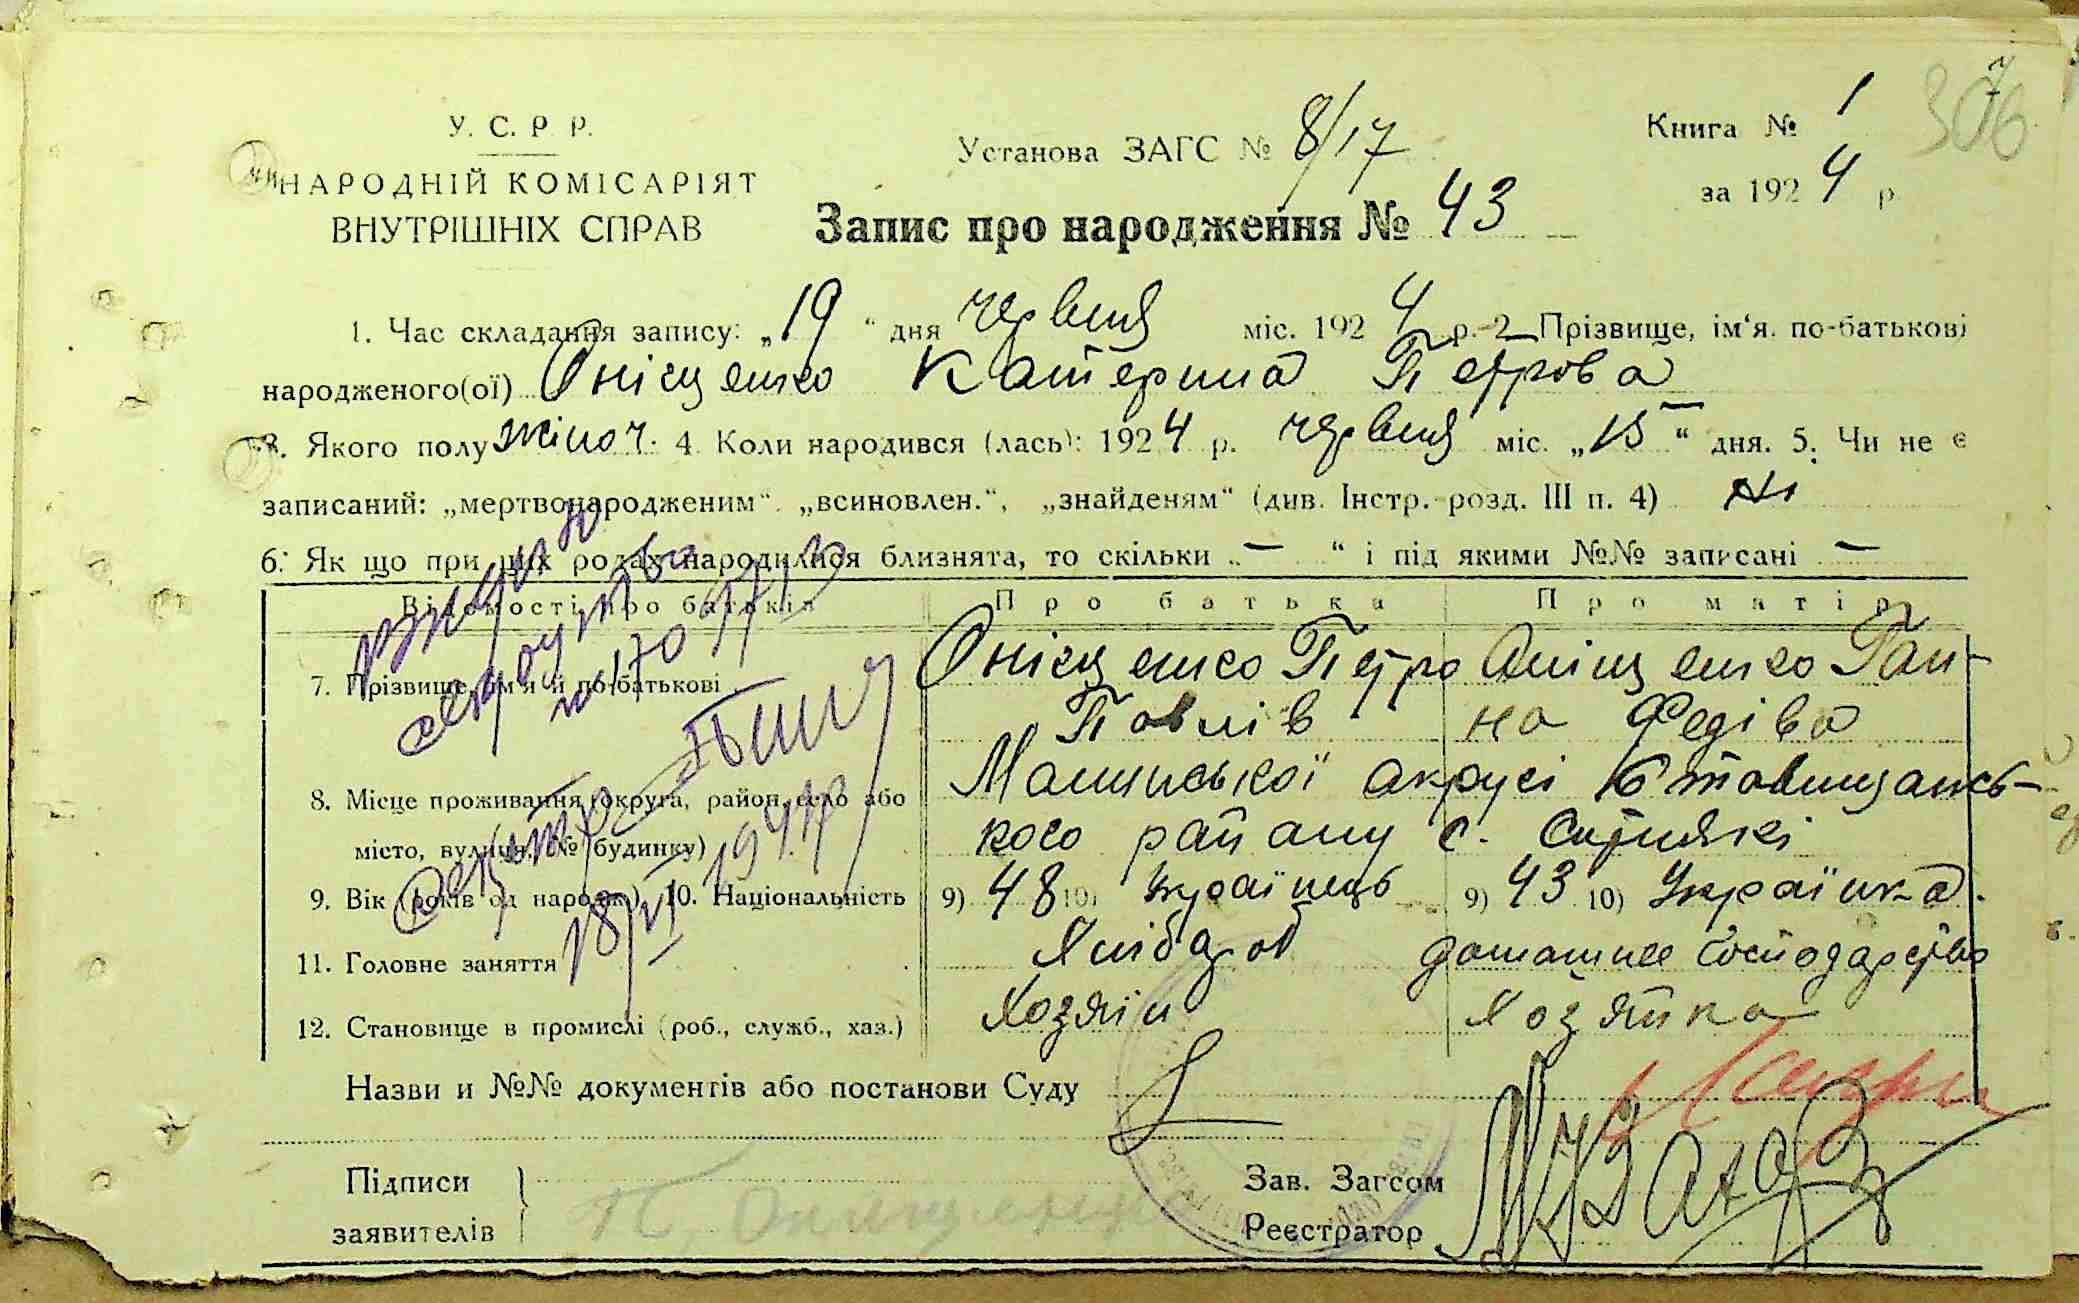 306
У. С. Р. Р.
НАРОДНІЙ КОМІСАРІЯТ
ВНУТРІШНІХ СПРАВ
Установа ЗАГС № 8/17
Книга № 1
за 1924 р.
Запис про народження № 43
1. Час складання запису: „19“ дня червця міс. 1924 р. 2 Прізвище, ім'я. по-батькові
народженого(ої) Оніщенко Катерина Петрова
3. Якого полу жіноч. 4 Коли народився (лась): 1924 р. червця міс. „15“ дня. 5. Чи не є
записаний: „мертвонародженим“ „всиновлен.“, „знайденям“ (див. Інстр. розд. III п. 4) Ні
6. Як що при цих родах народилися близнята, то скільки „ — “ і під якими №№ записані —
Відомості про батьків Про батька Про матір
7. Прізвище, ім'я й по-батькові Оніщенко Петро Павлів Аніщенко Ган-на Федіва
8. Місце проживання (округа, район, село або
місто, вулиця, № будинку) окрусі Ставищансь-
кого району с.
9. Вік (років од народж.) 10. Національність 9) 48 10) Українець 9) 43 10) Українка.
11. Головне заняття Хлібароб домашнее Господарство
12. Становище в промислі (роб., служб., хаз.) Хозяїн Хозяйка
Назви и №№ документів або постанови Суду
Підписи
заявителів
П. Онищенко
Зав. Загсом
Реєстратор
18/VI 1947р